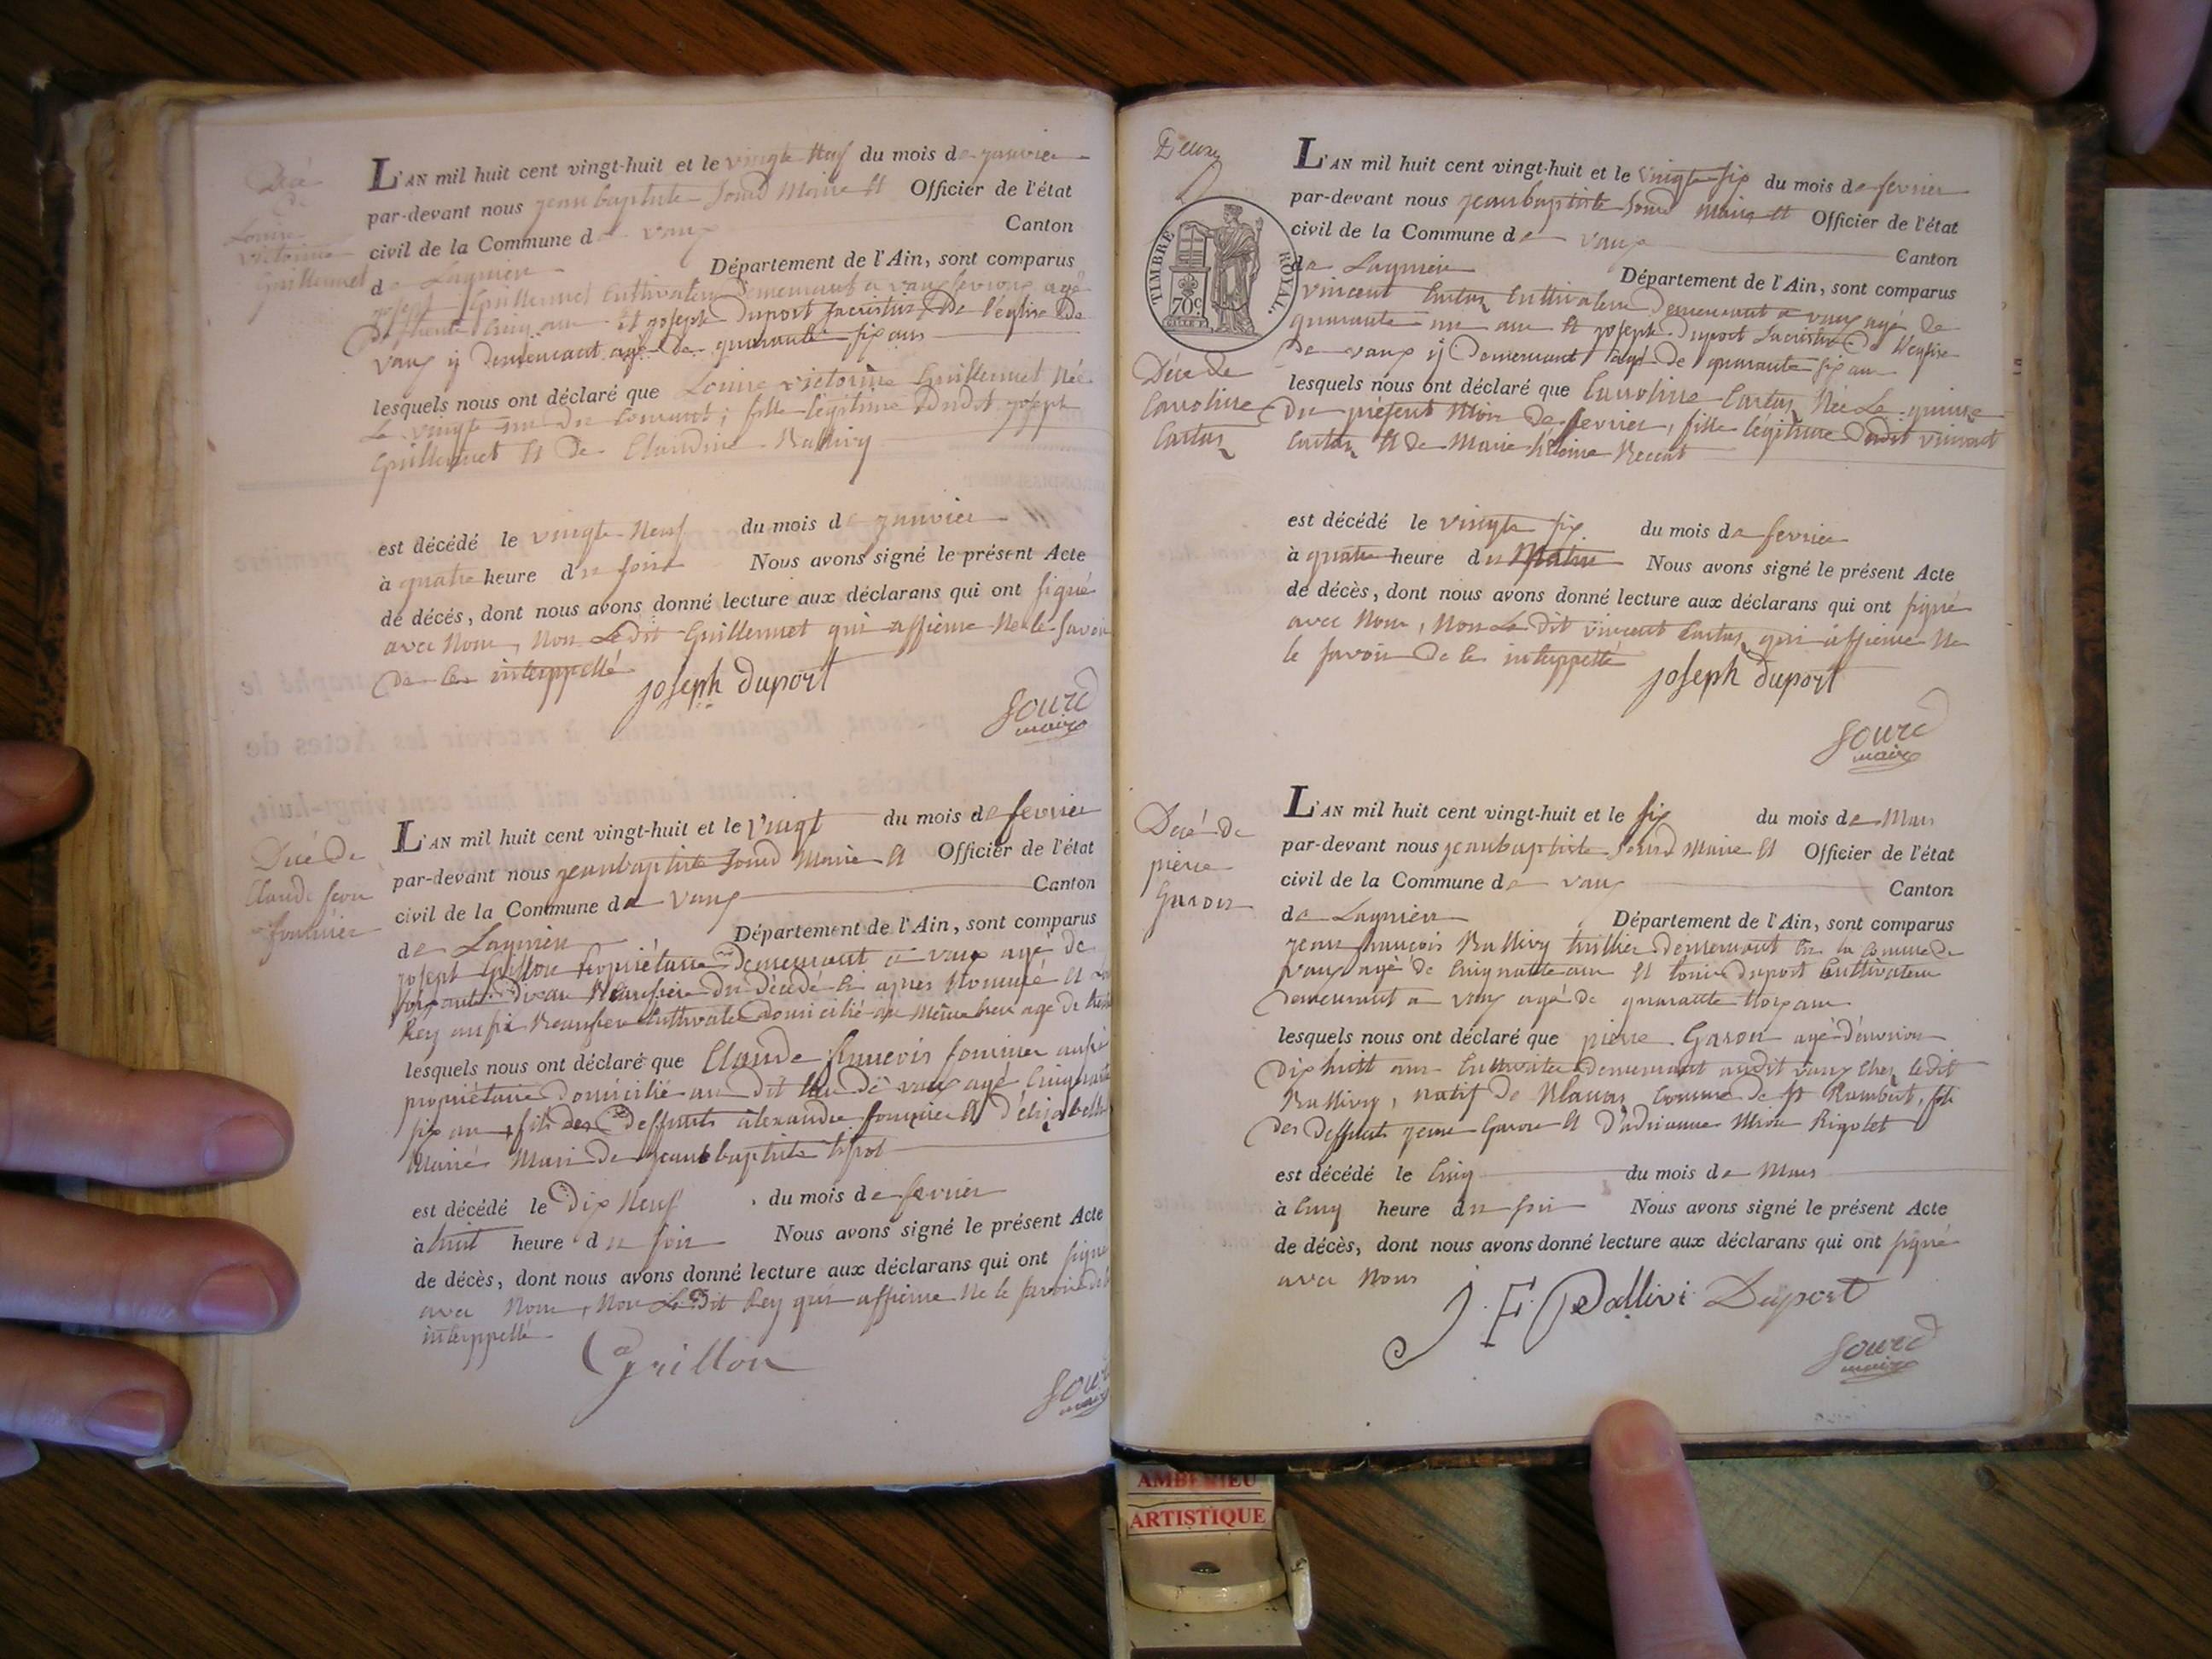 Décé
de
Louise
victorine
Guillermet
L'AN mil huit cent vingt-huit et le vingte neuf du mois de janvier
par-devant nous jean baptiste Sourd Maire et Officier de l'état
civil de la Commune de vaux Canton
de Lagnieu Département de l'Ain, sont comparus
joseph Guillermet Cultivateur demeurant a vaux agé
de trente Cinq ans et joseph Duport Sacristin De l'église De
vaux ÿ demeurant agé de quarante six ans
lesquels nous ont déclaré que Louise victorine Guillermet Née
Le vingte un du Courant, fille legitime dudit joseph
Guillermet et de Claudine Ballivy
est décédé le vingte Neuf du mois de janvier
à quatre heure du soire Nous avons signé le présent Acte
de décès, dont nous avons donné lecture aux déclarans qui ont signé
avec Nous, Non Le dit Guillermet qui affierme Ne le savoir
De le interppellé
joseph duport
Sourd
maire
Décé De
Claude fcois
fournier
L'AN mil huit cent vingt-huit et le Vingt du mois de fevrier
par-devant nous jeanbaptiste Sourd Maire et Officier de l'état
civil de la Commune de Vaux Canton
de Lagnieu Département de l'Ain, sont comparus
joseph Grillon propriétaire Demeurant a vaux agé de
soixante dix ans Beaufrere du décedé ci apres Nommé et
Rey aussi Beaufrere Cultivateur domicilié au même lieu agé de
lesquels nous ont déclaré que Claude francois fournier aussi
propriétaire Domicilié au dit lieu de vaux agé Cinquante
six ans fils des deffunts alexandre fournier et d'élisabeth
Marié Mari de jeanbaptiste
est décédé le Dix Neuf du mois de fevrier
à huit heure du soir Nous avons signé le présent Acte
de décès, dont nous avons donné lecture aux déclarans qui ont signé
avec Nous, Non Le Dit Rey qui affierme Ne le savoir de le
interppellé
Grillon
Sourd
maire
Deuxe
TIMBRE ROYAL
70c
Décé de
Carroline
Cartaz
L'AN mil huit cent vingt-huit et le vingte six du mois de fevrier
par-devant nous jeanbaptiste Sourd Maire et Officier de l'état
civil de la Commune de vaux Canton
de Lagnieu Département de l'Ain, sont comparus
vincent Cartaz Cultivateur demeurant a vaux agé de
quarante un ans et joseph Duport Sacristin De l'église
De vaux ÿ Demeurant agé de quarante six ans
lesquels nous ont déclaré que Carroline Cartaz Née Le quinze
Du présent Mois de fevrier, fille legitime dudit vincent
Cartaz et de Marie
est décédé le vingte six du mois de fevrier
à quatre heure du Matin Nous avons signé le présent Acte
de décès, dont nous avons donné lecture aux déclarans qui ont signé
avec Nous, Non Le dit vincent Cartaz qui affierme Ne
le savoir De le interppellé
joseph duport
Sourd
maire
Décé de
pierre
Garon
L'AN mil huit cent vingt-huit et le six du mois de Mars
par-devant nous jeanbaptiste Sourd Maire et Officier de l'état
civil de la Commune de vaux Canton
de Lagnieu Département de l'Ain, sont comparus
jean françois Ballivy demeurant en la Commune de
vaux agé de Cinquante ans et louis duport Cultivateur
Demeurant a vaux agé de quarante trois ans
lesquels nous ont déclaré que pierre Garon agé d'environ
Dix huit ans Cultivateur demeurant audit vaux chez ledit
Ballivy, natif de Blanaz Commune de st Rambert, fils
des deffunts jean Garon et D'adrianne Rigolet
est décédé le Cinq du mois de Mars
à Cinq heure du soir Nous avons signé le présent Acte
de décès, dont nous avons donné lecture aux déclarans qui ont signé
avec Nous
J. F. Ballivi Duport
Sourd
maire
AMBERIEU
ARTISTIQUE